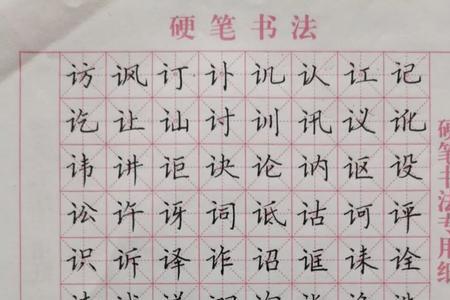 硬笔书法
访讽订讣讥认讧记
讫让讪讨训讯议讹
讳讲讵诀论讷讴设
讼许讶词诋诂诃评
识诉译诈诏诓诔诠
硬笔书法专用纸